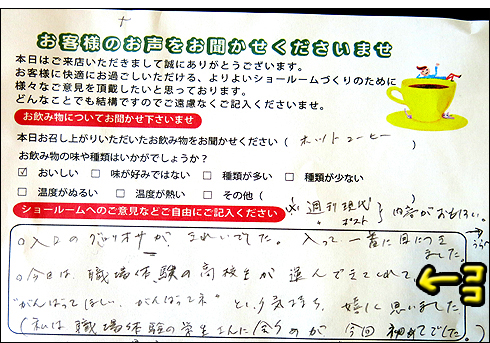 お客様のお声をお聞かせくださいませ
本日はご来店いただきまして誠にありがとうございます。
お客様に快適にお過ごしいただける、よりよいショールームづくりのために
様々なご意見を頂戴したいと思っております。
どんなことでも結構ですのでご遠慮なくご記入くださいませ。
お飲み物についてお聞かせ下さいませ
本日お召し上がりいただいたお飲み物をお聞かせください（ ホットコーヒー ）
お飲み物の味や種類はいかがでしょうか？
☑ おいしい □ 味が好みではない □ 種類が多い □ 種類が少ない
□ 温度がぬるい □ 温度が熱い □ その他（
※ 週刊現代 + ポスト } 内容がおもしろい。
ショールームへのご意見などご自由にご記入ください
○入口のグリオサが、きれいでした。入って一番に目につきました。
○今日は、職場体験の高校生が運んできてくれて
"がんばってほしい、がんばってネ" という気持ち、嬉しく思いました
(私は職場体験の学生さんに会うのが今回初めてでした。)
ココ